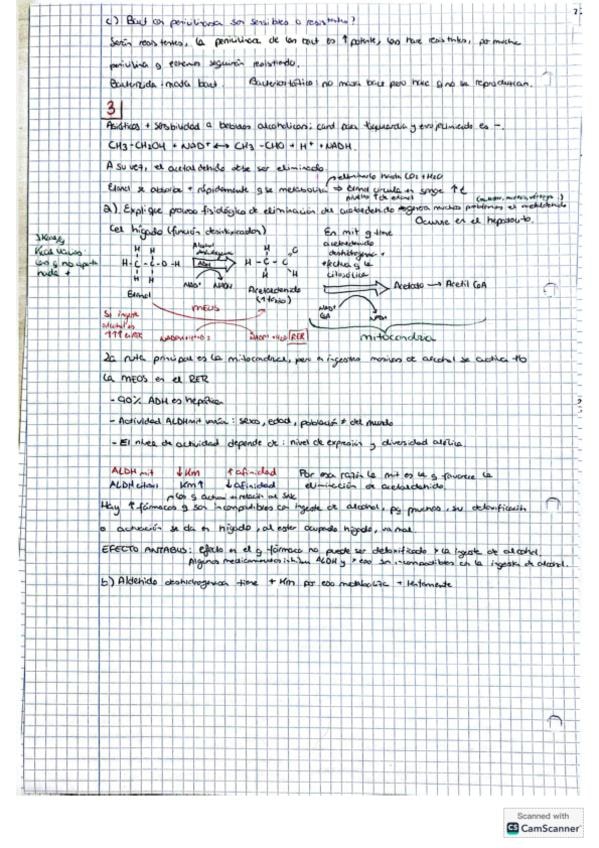 c) Bact con penicilinasa son sensibles o resistentes?
Serán resistentes, la penicilinasa de las bact es ↑ potente, las hace resistentes, por mucha
penicilina q echemos seguirán resistiendo.
Bactericida: mata bact. Bacteriostático: no mata bact pero hace q no se reproduzcan.
3
Asiáticos + sensibilidad a bebidas alcohólicas: cand para taquicardia y enrojecimiento es -.
CH3-CH2OH + NAD⁺ ↔ CH3-CHO + H⁺ + NADH.
A su vez, el acetaldehído debe ser eliminado
eliminarlo hasta CO2 + H2O
Etanol se absorbe + rápidamente q se metaboliza ⇒ etanol circula en sangre ↑ t
a) Explique proceso fisiológico de eliminación del acetaldehído
Ocurre en el hepatocito.
(el hígado (función desintoxicador)
En mit q tiene
acetaldehído
deshidrogenasa +
efectiva q la
citosólica
H H
H-C-C-O-H
H H
Etanol
ADH
NAD⁺ NADH
H O
H-C-C
H H
Acetaldehído
(+ tóxico)
NAD⁺
CoA
Acetato → Acetil CoA
MEOS
Si ingesta
RER
mitocondria
La ruta principal es la mitocondrial, pero a ingestas masivas de alcohol se activa tb
la MEOS en el RER
- 90% ADH es hepática
- Actividad ALDHmit varía: sexo, edad, población ≠ del mundo
- El nivel de actividad depende de: nivel de expresión y diversidad alélica.
ALDH mit ↓Km ↑ afinidad Por esa razón la mit es la q favorece la
ALDH citosol Km↑ ↓afinidad eliminación de acetaldehído.
Hay ↑ fármacos q son incompatibles con ingesta de alcohol, pq muchos, su detoxificación
o activación se da en hígado, al estar ocupado hígado, va mal.
EFECTO ANTABUS: efecto en el q fármaco no puede ser detoxificado x la ingesta de alcohol.
Algunos medicamentos inhiben ALDH y x eso son incompatibles con la ingesta de alcohol.
b) Aldehído deshidrogenasa tiene + Km por eso metaboliza + lentamente
Scanned with
CS CamScanner